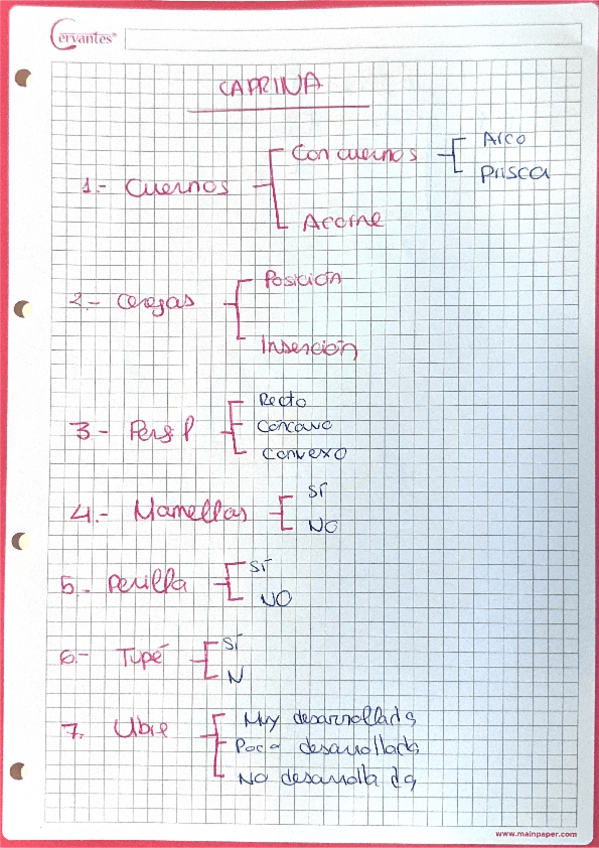 Cervantes®
CAPRINA
1.- Cuernos
Con cuernos
Arco
Prisca
Acorne
2.- Orejas
Posición
Inserción
3.- Perfil
Recto
Concavo
Convexo
4.- Mamellas
SÍ
NO
5.- Perilla
SÍ
NO
6.- Tupé
SÍ
N
7. Ubre
Muy desarrollada
Poco desarrollada
No desarrollada
www.mainpaper.com